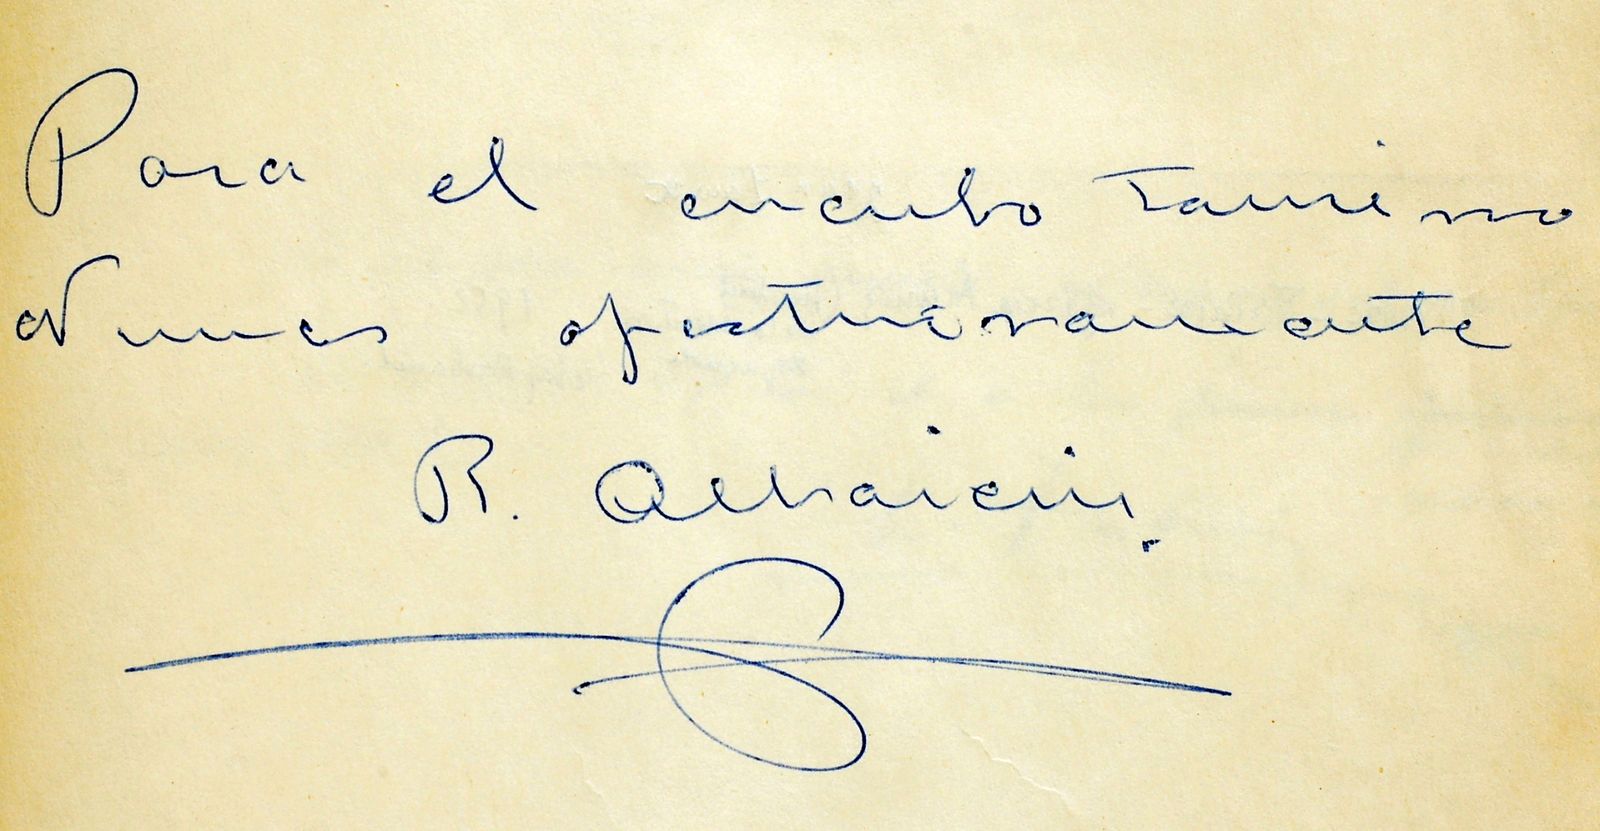 Para el circulo Taurino
Nimes afectuosamente
R. Albaicin